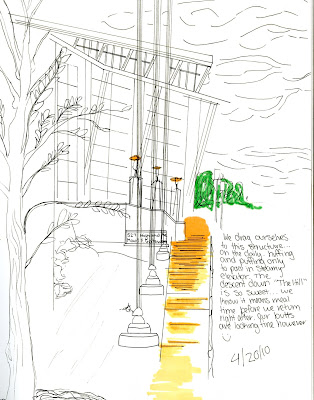 We drag ourselves
to this structure...
on the daily. huffing
and puffing only
to pack in steamy
elevator. The
descent down "The Hill"
is so sweet... we
know it means meal
time before we return
right after. Our butts
are looking fine however
4/20/10